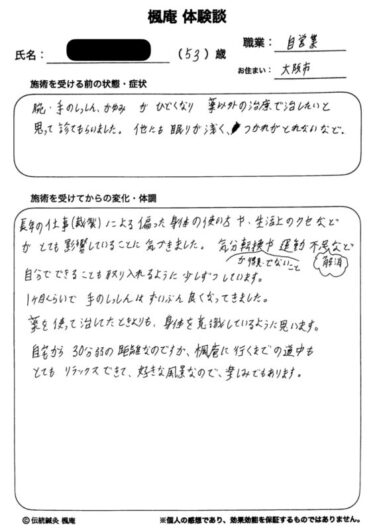 楓庵 体験談
氏名：
（53）歳
職業： 自営業
お住まい： 大阪市
施術を受ける前の状態・症状
腕・手のしっしん、かゆみ が ひどくなり 薬以外の治療で治したいと
思って 診てもらいました。 他にも 眠りが浅く、つかれがとれないなど。
施術を受けてからの変化・体調
長年の仕事(裁縫)による 偏った 身体の使い方 や、生活上のクセなど
が とても 影響していることに 気づきました。 気分転換や 運動不足など
が現在でないこと 解消
自分でできることも 取り入れるように 少しずつしています。
1ヶ月くらいで 手のしっしんは ずいぶん 良くなってきました。
薬を使って治してたときよりも、身体を意識しているように思います。
自宅から 30分弱の 距離なのですが、楓庵に 行くまでの道中も
とても リラックスできて、好きな風景なので、楽しみでもあります。
© 伝統鍼灸 楓庵
※個人の感想であり、効果効能を保証するものではありません。